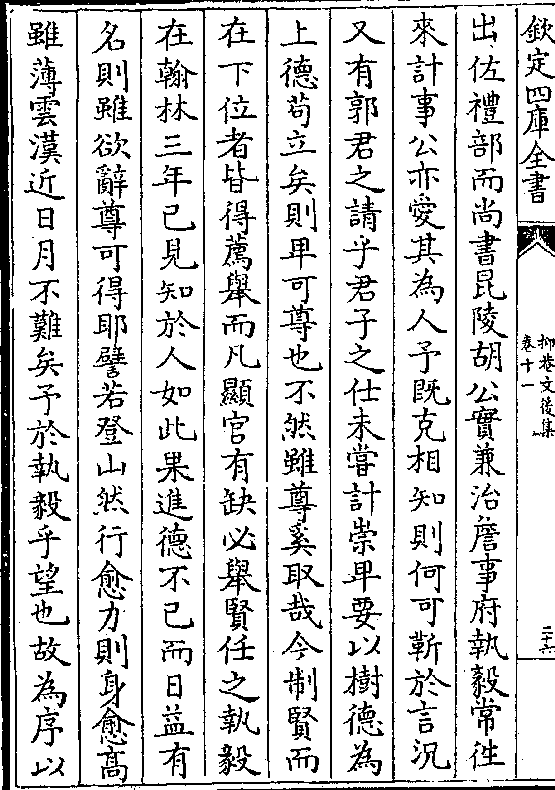 欽定四庫全書
抑菴文後集
卷十一
二十六
出佐禮部而尚書毘陵胡公實兼治詹事府執毅常往
來計事公亦愛其為人予既克相知則何可靳於言況
又有郭君之請乎君子之仕未嘗計崇卑要以樹德為
上德苟立矣則卑可尊也不然雖尊奚取哉今制賢而
在下位者皆得薦舉而凡顯官有缺必舉賢任之執毅
在翰林三年已見知於人如此果進德不已而日益有
名則雖欲辭尊可得耶譬若登山然行愈力則身愈高
雖薄雲漢近日月不難矣予於執毅乎望也故為序以